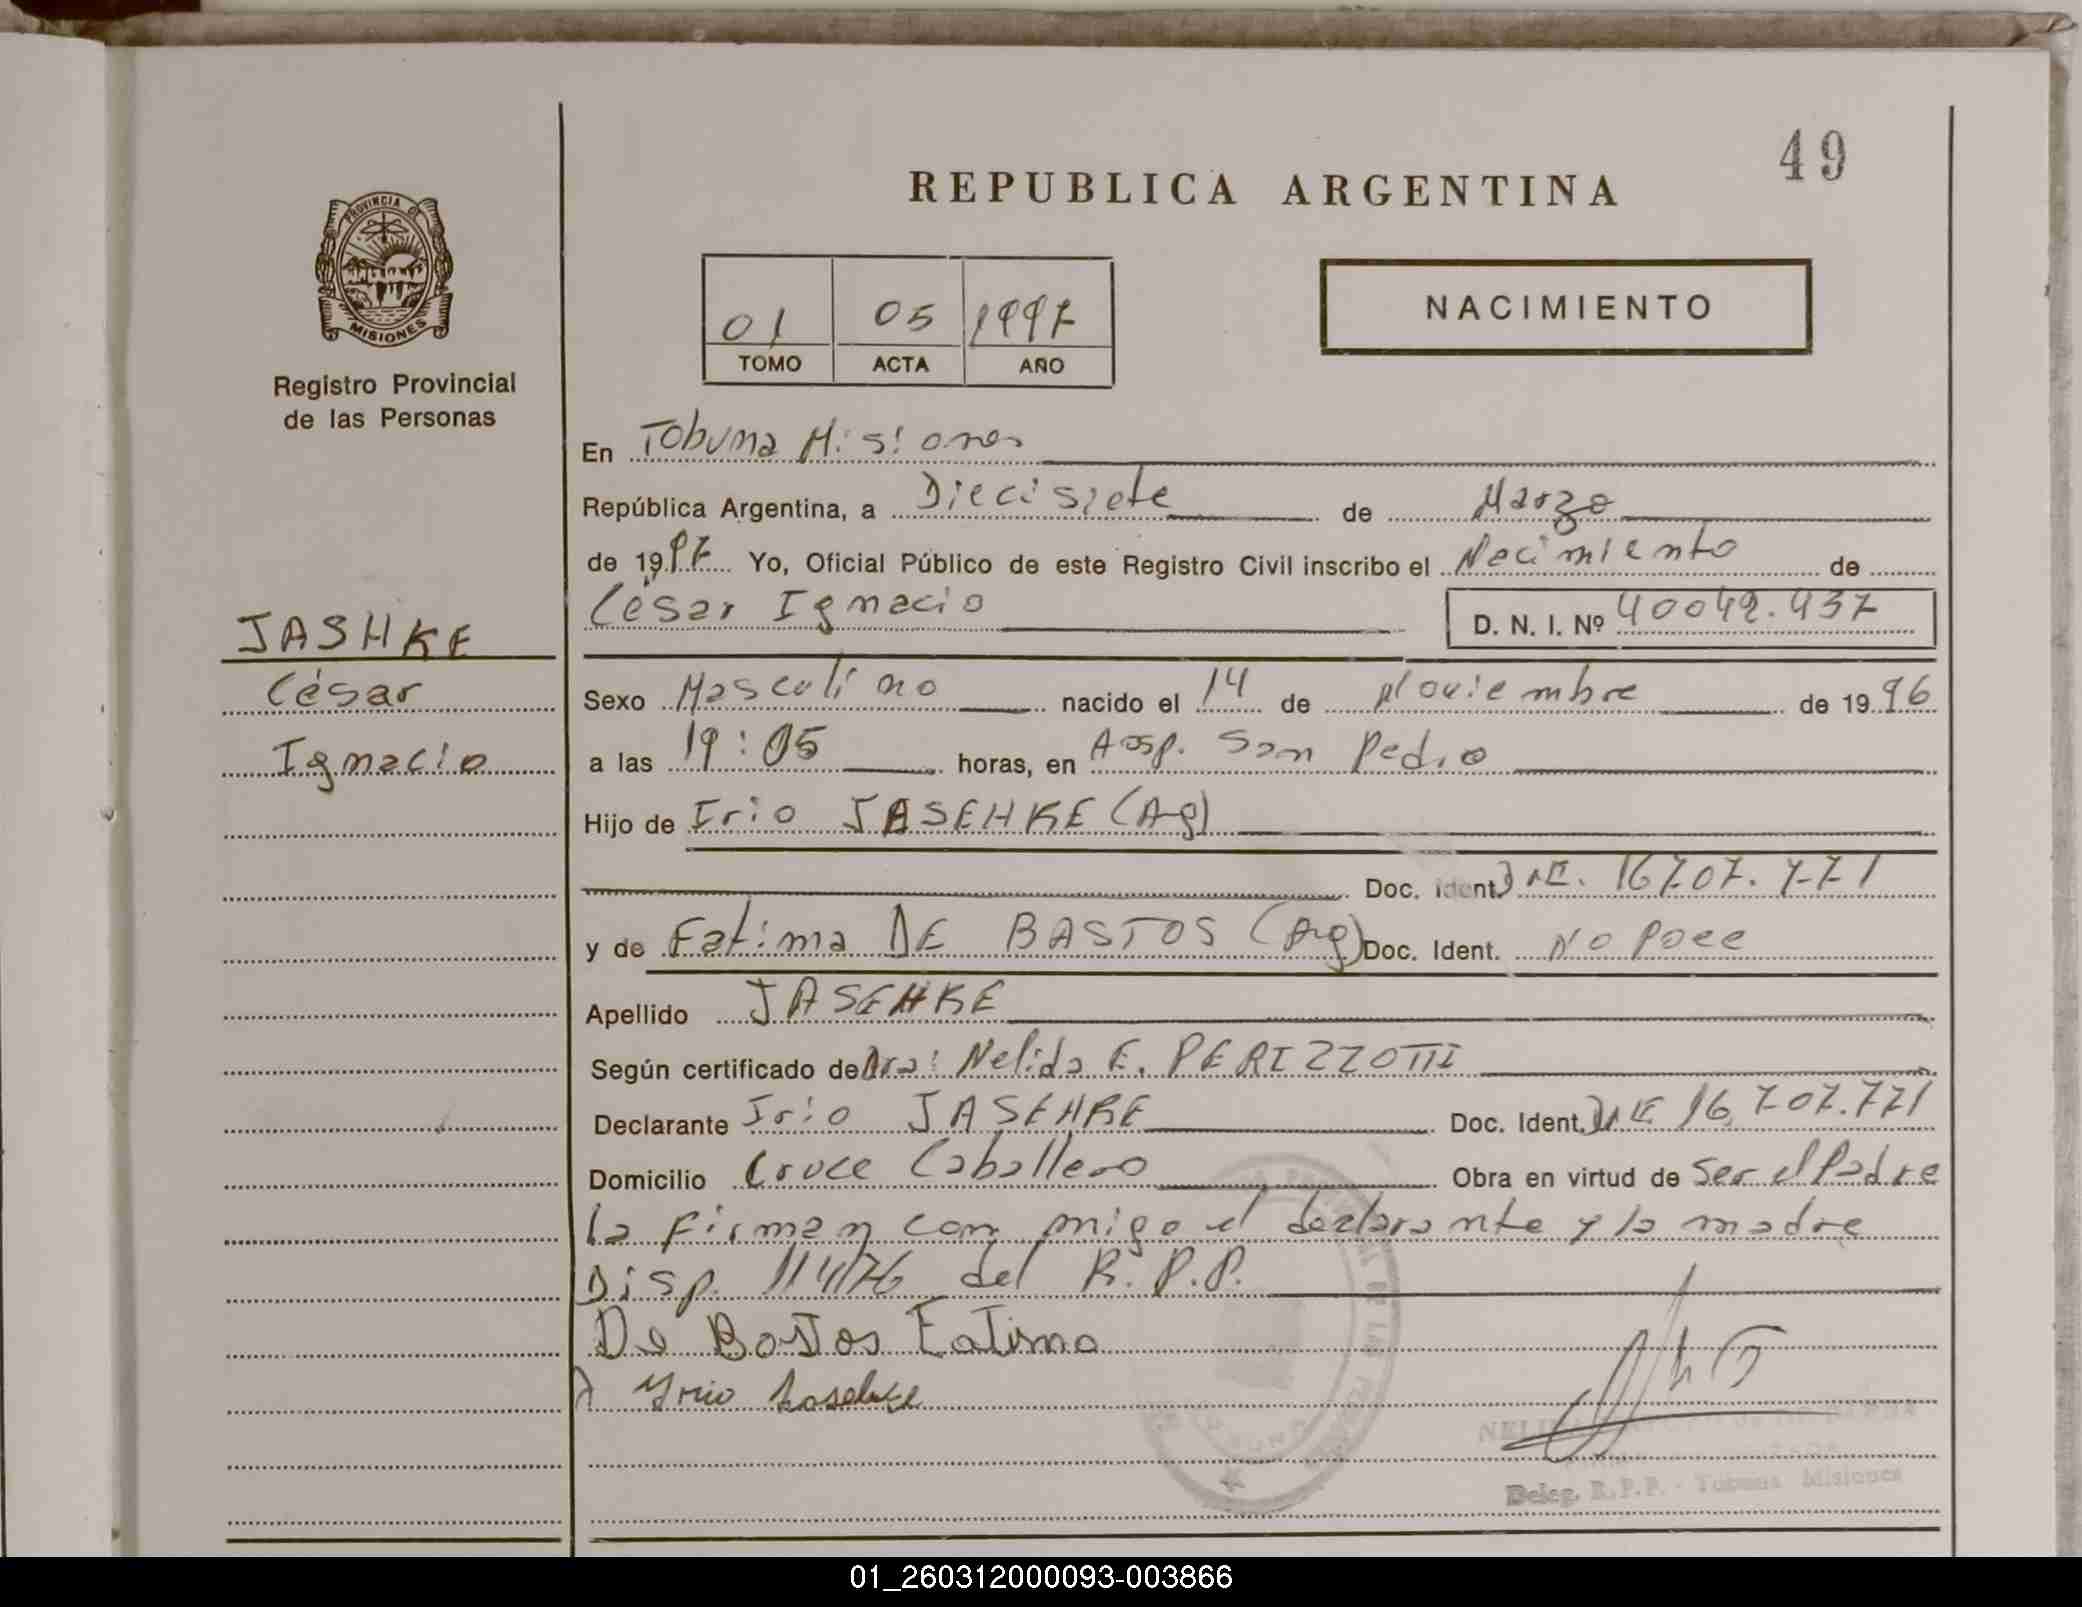 49
REPUBLICA ARGENTINA
PROVINCIA DE
MISIONES
NACIMIENTO
01 05 1997
TOMO ACTA AÑO
Registro Provincial
de las Personas
En Tobuna Misiones
República Argentina, a Diecisiete de Marzo
de 1997 Yo, Oficial Público de este Registro Civil inscribo el Nacimiento de
César Ignacio D. N. I. Nº 40042.437
JASHKE
César
Ignacio
Sexo Masculino nacido el 14 de Noviembre de 1996
a las 19:05 horas, en Hosp. San Pedro
Hijo de Irio JASEHKE (Ag)
Doc. Ident. DNI. 16707.771
y de Fatima DE BASTOS (Arg) Doc. Ident. No Poee
Apellido JASEHKE
Según certificado de Dra: Nelida E. PERIZZOTTI
Declarante Irio JASEHKE Doc. Ident. DNI 16.707.771
Domicilio Cruce Caballero Obra en virtud de Ser el Padre
la firman con migo el declarante y la madre
Disp. 114/76 del R.P.P.
De Bastos Fatima
Yrio
Deleg. R.P.P. - Tobuna Misiones
01_260312000093-003866